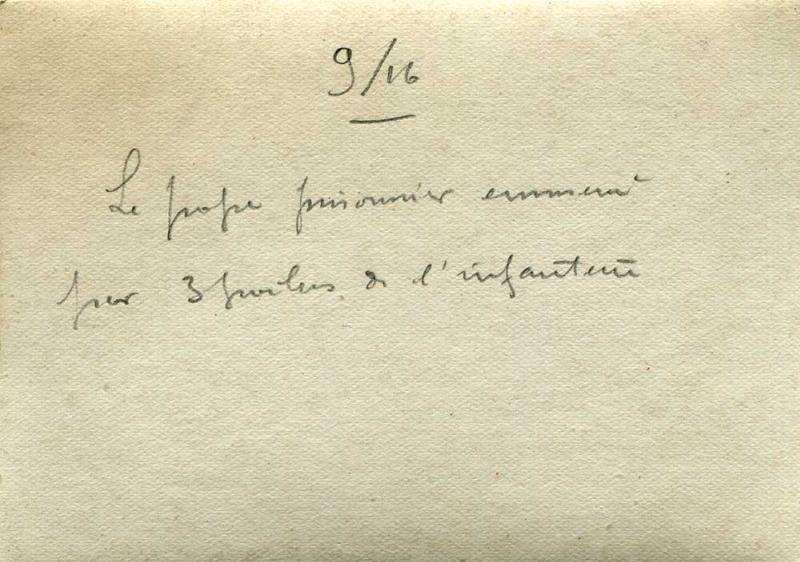 9/16
Le pope prisonnier emmené
par 3 poilus de l'infanterie